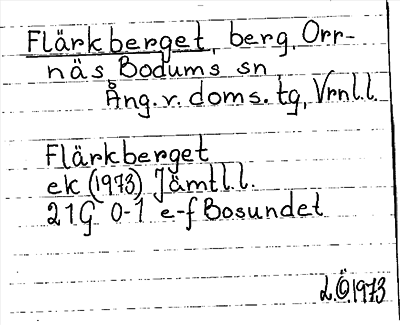 Flärkberget, berg, Orr-
näs Bodums sn
Ång. v. doms. tg, Vrnl.l.
Flärkberget
ek (1973) Jämtl.l.
21G 0-1 e-f Bosundet
L.Ö.1973